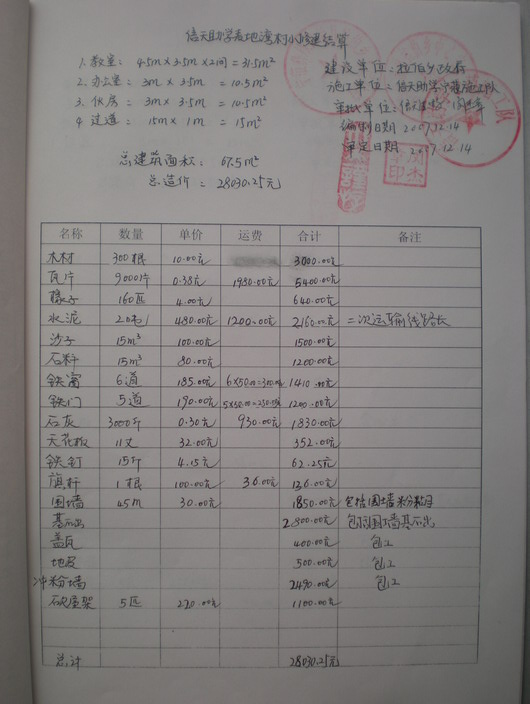 信天助学麦地湾村小修建结算
1. 教室: 4.5m×3.5m×2间=31.5m²
2. 办公室: 3m×3.5m =10.5m²
3. 伙房: 3m×3.5m =10.5m²
4 过道: 15m×1m =15m²
总建筑面积: 67.5m²
总造价: 28030.25元
建设单位:
施工单位:信天助学
审批单位:信天
编制日期 2007.12.14
审定日期 2007.12.14
名称 数量 单价 运费 合计 备注
木材 300根 10.00元 3000.00元
瓦片 9000片 0.38元 1980.00元 5400.00元
椽子 160匹 4.00元 640.00元
水泥 2吨 480.00元 1200.00元 2160.00元 二次运输线路长
沙子 15m³ 100.00元 1500.00元
石料 15m³ 80.00元 1200.00元
铁窗 6道 185.00元 6×50.00=300.00元 1410.00元
铁门 5道 190.00元 5×50.00=250.00元 1200.00元
石灰 3000斤 0.30元 930.00元 1830.00元
天花板 11丈 32.00元 352.00元
铁钉 15斤 4.15元 62.25元
旗杆 1根 100.00元 36.00元 136.00元
围墙 45m 30.00元 1850.00元 包括围墙粉
基石 2800.00元 包括围墙基石
盖瓦 400.00元 包工
地皮 500.00元 包工
冲粉墙 2490.00元 包工
屋架 5匹 220.00元 1100.00元
总计 28030.25元